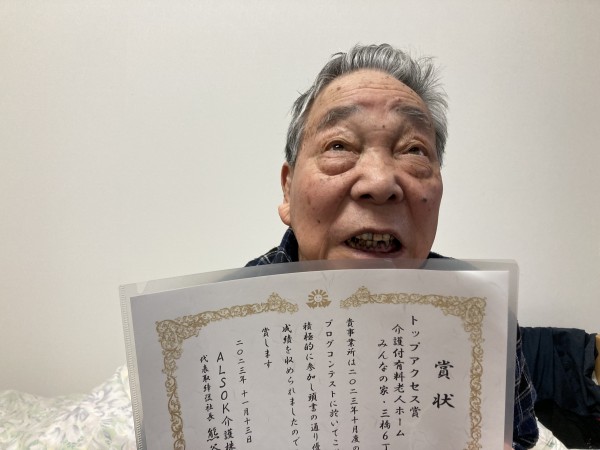 賞状
トップアクセス賞
介護付有料老人ホーム
みんなの家・三橋6丁
貴事業所は二〇二三年十月度の
ブログコンテストに於いてこ
積極的に参加し頭書の通り優
成績を収められましたので
賞します
二〇二三年 十一月十三日
ALSOK介護株
代表取締役社長 熊谷